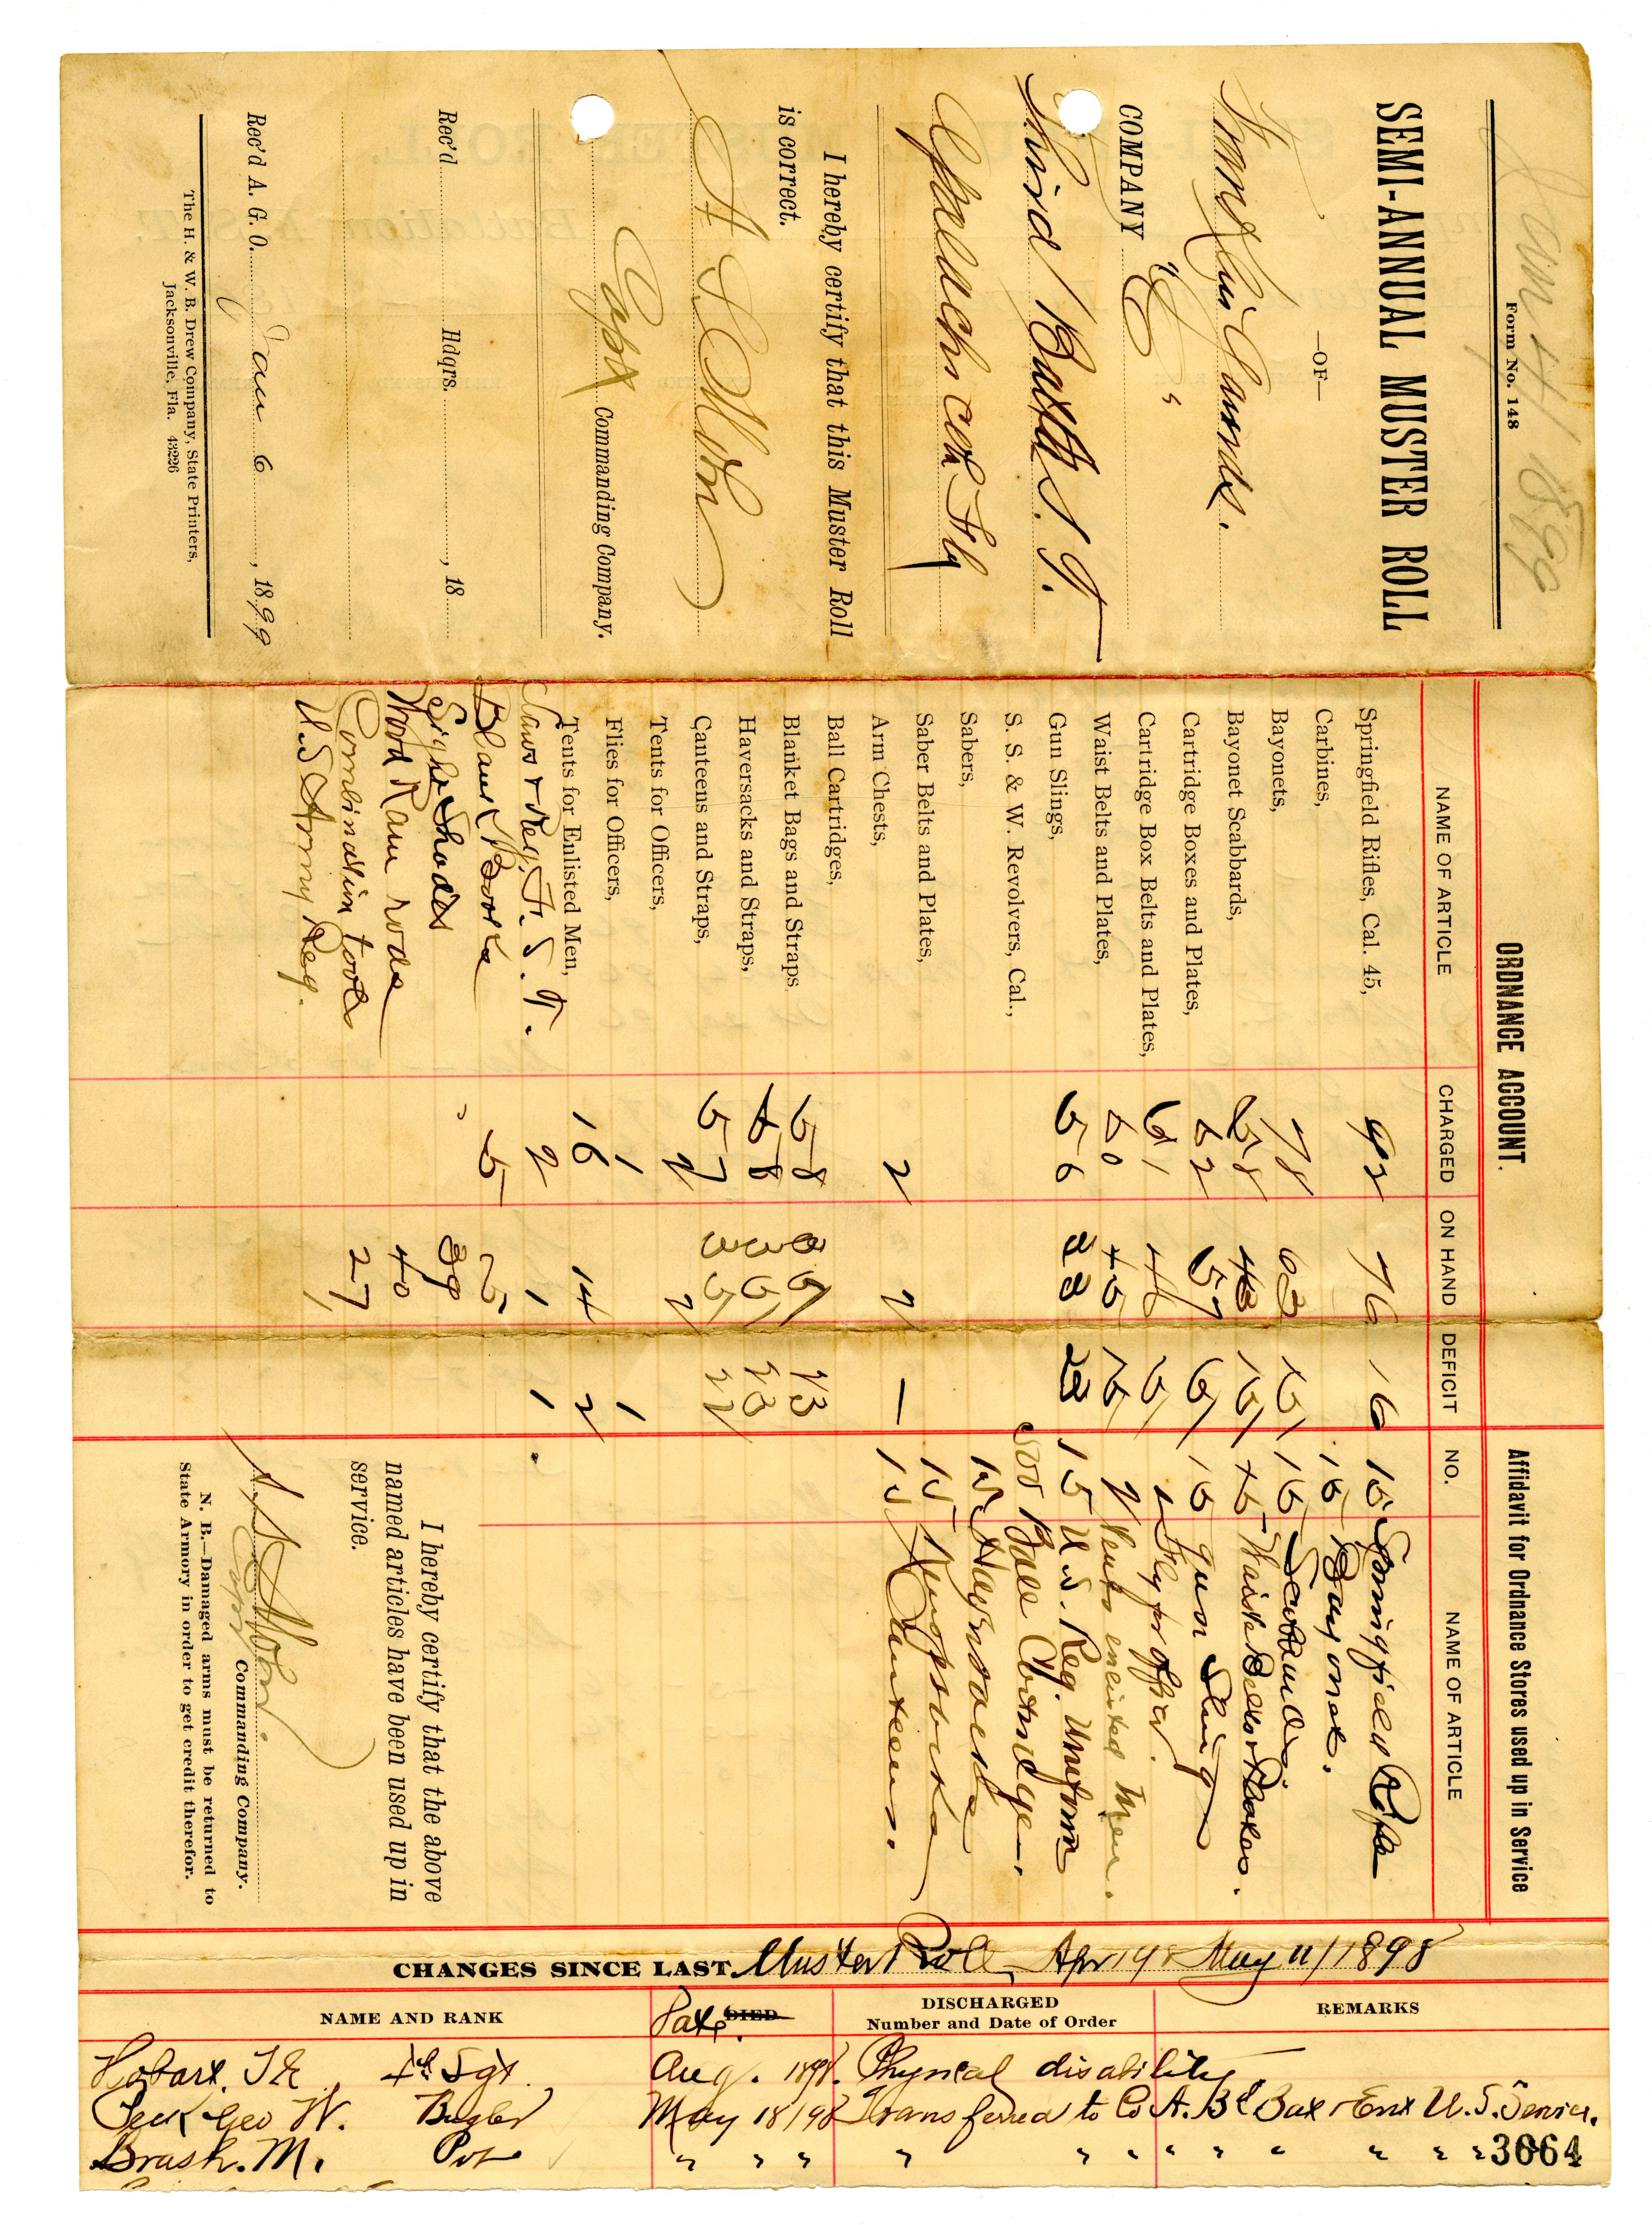 Jan 4 1899
Form No. 148
SEMI-ANNUAL MUSTER ROLL
—OF—
Franklin Guards.
COMPANY "C"
Third Batt. S T.
Apalachicola Fla
I hereby certify that this Muster Roll
is correct.
Capt Commanding Company.
Rec'd Hdqrs. , 18
Rec'd A. G. O. Jan 6 , 1899
The H. & W. B. Drew Company, State Printers,
Jacksonville, Fla. 43226
ORDNANCE ACCOUNT.
NAME OF ARTICLE CHARGED ON HAND DEFICIT
Springfield Rifles, Cal. 45, 92 76 16
Carbines,
Bayonets, 78 63 15
Bayonet Scabbards, 58 43 15
Cartridge Boxes and Plates, 62 57 5
Cartridge Box Belts and Plates, 61 46 15
Waist Belts and Plates, 60 45 15
Gun Slings, 56 33 23
S. S. & W. Revolvers, Cal.,
Sabers,
Saber Belts and Plates,
Arm Chests, 2 2 —
Ball Cartridges,
Blanket Bags and Straps 58 35 23
Haversacks and Straps, 58 35 23
Canteens and Straps, 57 35 22
Tents for Officers, 2 2
Flies for Officers, 1 1
Tents for Enlisted Men, 16 14 2
Laws & Reg. F. S. T. 2 1 1
Blank Books 5 5
Sight Shades 39
Wood Ram rods 40
Combination tools 27
U. S Army Reg.
Affidavit for Ordnance Stores used up in Service
NO. NAME OF ARTICLE
15 Springfield Rifles
15 Bayonets.
15 Scabbards.
45 Waist Belts & Plates.
15 gun Sling
1 Fly for officer.
2 Tents enlisted Men.
15 U. S. Reg. Uniform
500 Ball Cartridge.
15 Haversacks
15 Knapsacks
15 Canteens.
I hereby certify that the above
named articles have been used up in
service.
Capt Commanding Company.
N. B.—Damaged arms must be returned to
State Armory in order to get credit therefor.
CHANGES SINCE LAST Muster Roll, Apr 19 & May 11/1898
NAME AND RANK Date. DIED DISCHARGED Number and Date of Order REMARKS
Hobart, T E 1st Sgt. Aug. 1898. Physical disability
Peck Geo W. Bugler May 18/98 Transferred to Co A. 3d Bat Ent U. S. Service.
Brash. M. Pvt " " " " " " " " " " " "
3664